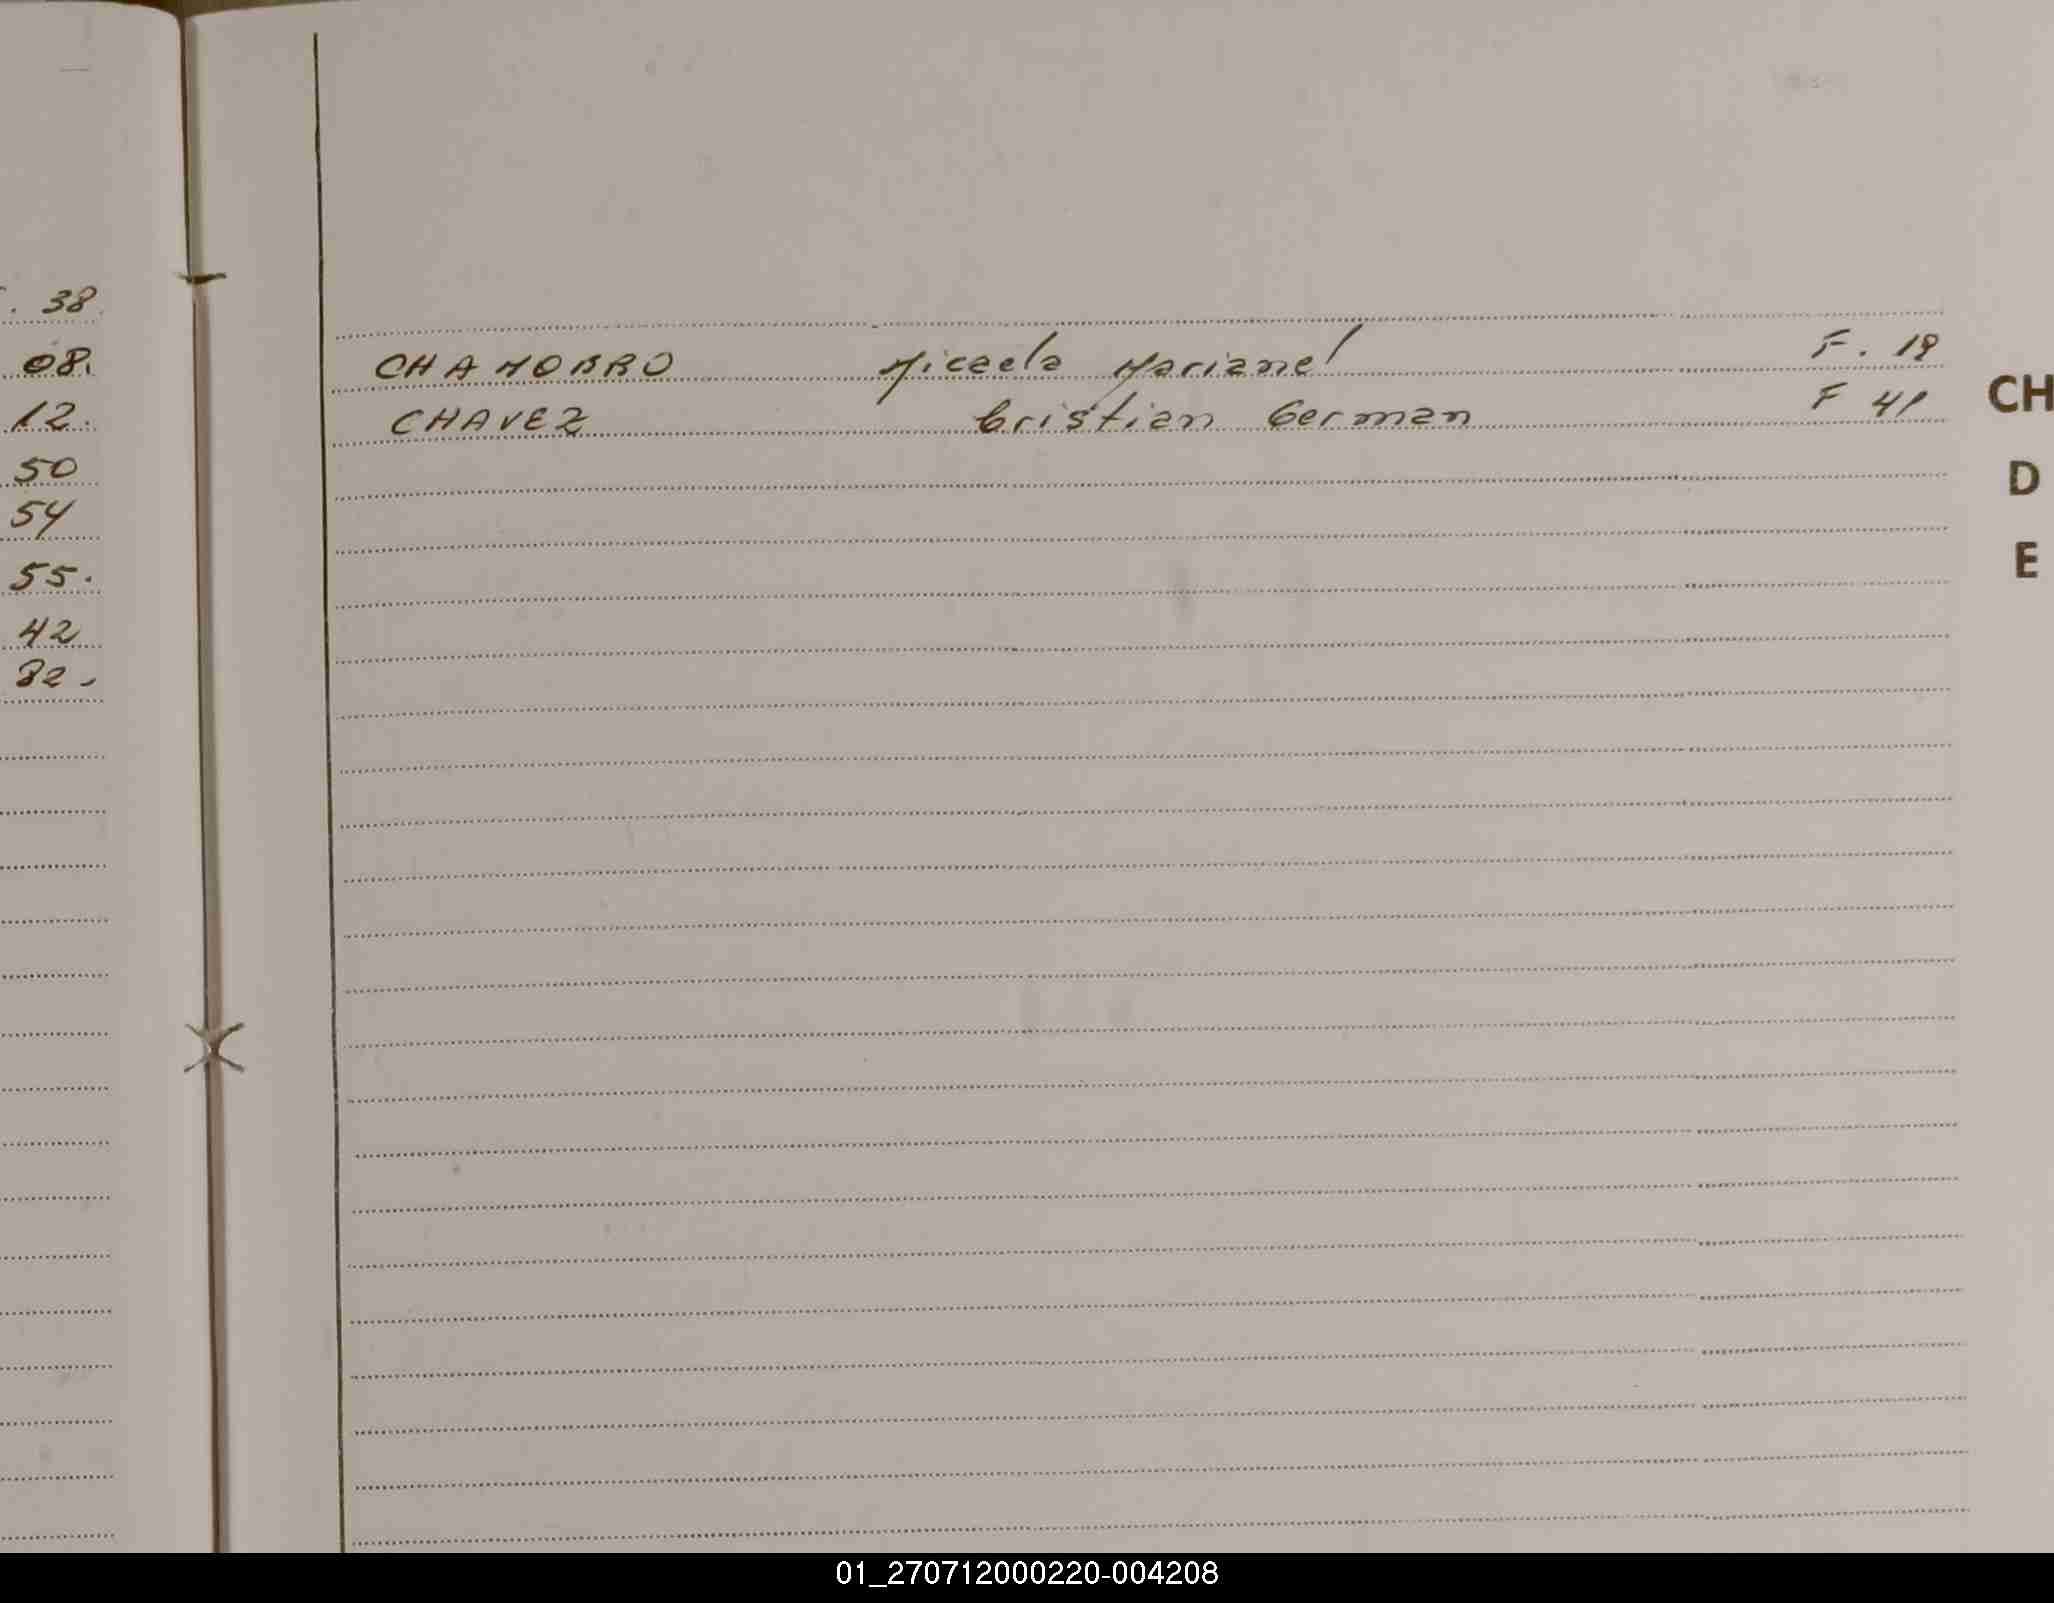 . 38.
08.
12.
50
54
55.
42
82.
CHAMORRO Micaela Marianel F. 18
CHAVEZ Cristian German F 41
CH
D
E
01_270712000220-004208